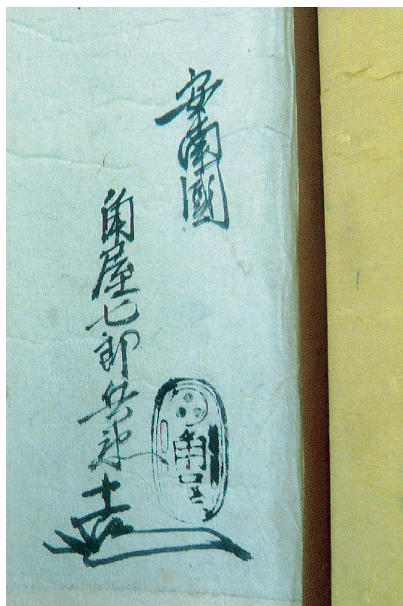 安南國
角屋七郎兵衛
角屋